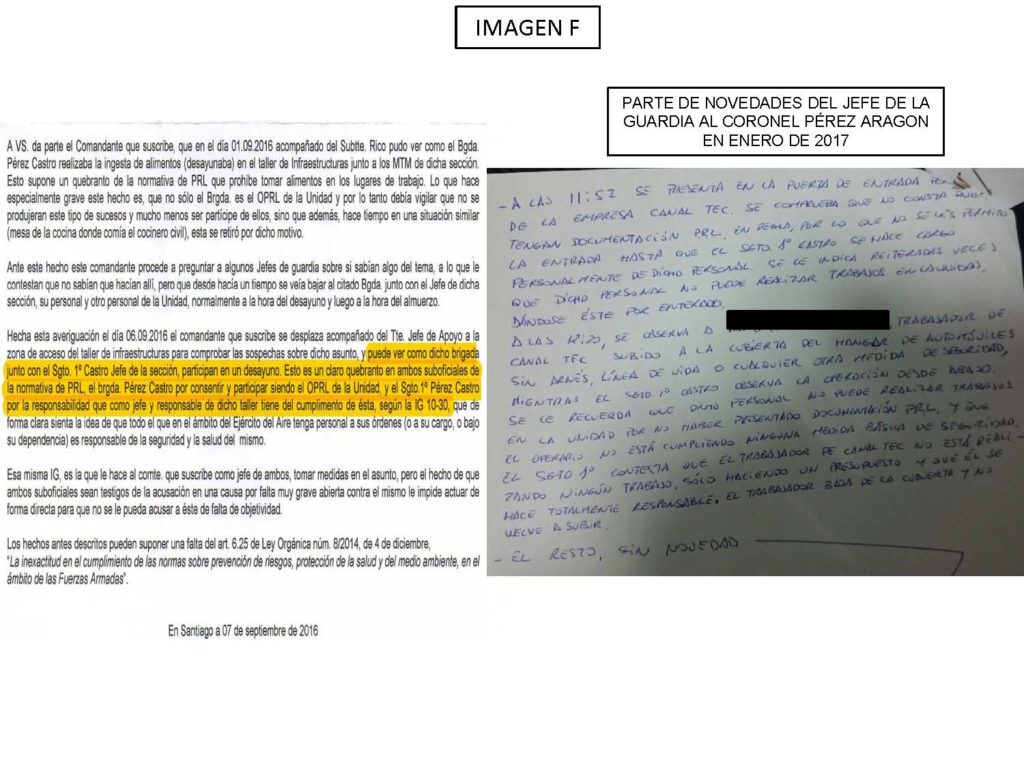 IMAGEN F
A VS. da parte el Comandante que suscribe, que en el día 01.09.2016 acompañado del Subtte. Rico pudo ver como el Bgda.
Pérez Castro realizaba la ingesta de alimentos (desayunaba) en el taller de Infraestructuras junto a los MTM de dicha sección.
Esto supone un quebranto de la normativa de PRL que prohíbe tomar alimentos en los lugares de trabajo. Lo que hace
especialmente grave este hecho es, que no sólo el Brgda. es el OPRL de la Unidad y por lo tanto debía vigilar que no se
produjeran este tipo de sucesos y mucho menos ser partícipe de ellos, sino que además, hace tiempo en una situación similar
(mesa de la cocina donde comía el cocinero civil), esta se retiró por dicho motivo.
Ante este hecho este comandante procede a preguntar a algunos Jefes de guardia sobre si sabían algo del tema, a lo que le
contestan que no sabían que hacían allí, pero que desde hacía un tiempo se veía bajar al citado Bgda. junto con el Jefe de dicha
sección, su personal y otro personal de la Unidad, normalmente a la hora del desayuno y luego a la hora del almuerzo.
Hecha esta averiguación el día 06.09.2016 el comandante que suscribe se desplaza acompañado del Tte. Jefe de Apoyo a la
zona de acceso del taller de infraestructuras para comprobar las sospechas sobre dicho asunto, y puede ver como dicho brigada
junto con el Sgto. 1º Castro Jefe de la sección, participan en un desayuno. Esto es un claro quebranto en ambos suboficiales de
la normativa de PRL, el brgda. Pérez Castro por consentir y participar siendo el OPRL de la Unidad, y el Sgto.1º Pérez Castro
por la responsabilidad que como jefe y responsable de dicho taller tiene del cumplimento de ésta, según la IG 10-30, que de
forma clara sienta la idea de que todo el que en el ámbito del Ejército del Aire tenga personal a sus órdenes (o a su cargo, o bajo
su dependencia) es responsable de la seguridad y la salud del mismo.
Esa misma IG, es la que le hace al comte. que suscribe como jefe de ambos, tomar medidas en el asunto, pero el hecho de que
ambos suboficiales sean testigos de la acusación en una causa por falta muy grave abierta contra el mismo le impide actuar de
forma directa para que no se le pueda acusar a éste de falta de objetividad.
Los hechos antes descritos pueden suponer una falta del art. 6.25 de Ley Orgánica núm. 8/2014, de 4 de diciembre,
“La inexactitud en el cumplimiento de las normas sobre prevención de riesgos, protección de la salud y del medio ambiente, en el
ámbito de las Fuerzas Armadas”.
En Santiago a 07 de septiembre de 2016
PARTE DE NOVEDADES DEL JEFE DE LA
GUARDIA AL CORONEL PÉREZ ARAGON
EN ENERO DE 2017
- A LAS 11:57 SE PRESENTA EN LA PUERTA DE ENTRADA
DE LA EMPRESA CANAL TEC. SE COMPRUEBA QUE NO CONSTA QUE
TENGAN DOCUMENTACIÓN PRL. EN REGLA, POR LO QUE NO SE LES PERMITE
LA ENTRADA HASTA QUE EL SGTO. 1º CASTRO SE HACE CARGO
PERSONALMENTE DE DICHO PERSONAL. SE LE INDICA REITERADAS VECES
QUE DICHO PERSONAL NO PUEDE REALIZAR TRABAJOS EN LA UNIDAD,
DÁNDOSE ÉSTE POR ENTERADO.
A LAS 12:20, SE OBSERVA A TRABAJADOR DE
CANAL TEC SUBIDO A LA CUBIERTA DEL HANGAR DE AUTOMÓVILES
SIN ARNÉS, LÍNEA DE VIDA O CUALQUIER OTRA MEDIDA DE SEGURIDAD,
MIENTRAS EL SGTO 1º CASTRO OBSERVA LA OPERACIÓN DESDE ABAJO.
SE LE RECUERDA QUE DICHO PERSONAL NO PUEDE REALIZAR TRABAJOS
EN LA UNIDAD POR NO HABER PRESENTADO DOCUMENTACIÓN PRL, Y QUE
EL OPERARIO NO ESTÁ CUMPLIENDO NINGUNA MEDIDA BÁSICA DE SEGURIDAD.
EL SGTO 1º CONTESTA QUE EL TRABAJADOR DE CANAL TEC NO ESTÁ REALI-
ZANDO NINGÚN TRABAJO, SÓLO HACIENDO UN PRESUPUESTO Y QUE ÉL SE
HACE TOTALMENTE RESPONSABLE. EL TRABAJADOR BAJA DE LA CUBIERTA Y NO
VUELVE A SUBIR.
- EL RESTO, SIN NOVEDAD